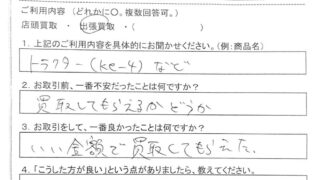 ご利用内容（どれかに○。複数回答可。）
店頭買取・出張買取・（　　　　　）
1. 上記のご利用内容を具体的にお聞かせください。（例:商品名）
トラクター(ke-4)など
2. お取引前、一番不安だったことは何ですか？
買取してもらえるかどうか
3. お取引をして、一番良かったことは何ですか？
いい金額で買取してもらえた、
4. 「こうした方が良い」という点がありましたら、教えてください。